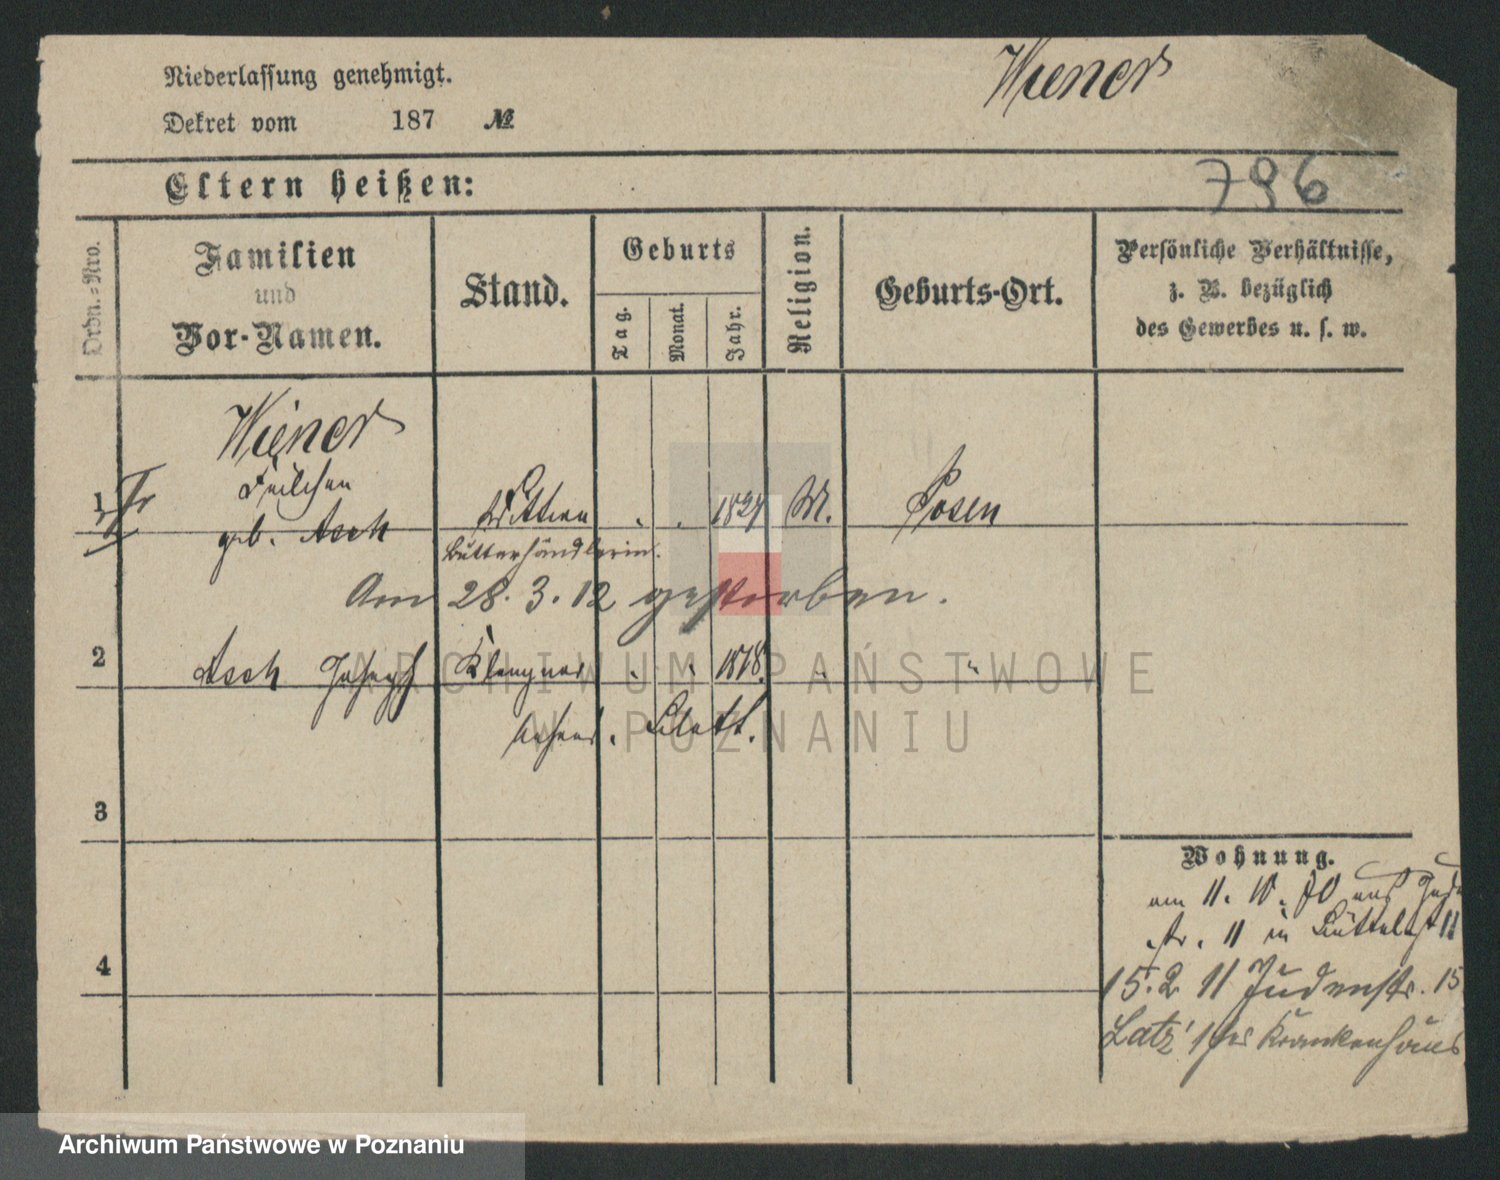 Niederlassung genehmigt.
Wiener
Dekret vom 187 №
Eltern heißen:
796
Ordn.-Nro.
Familien
und
Vor-Namen.
Stand.
Geburts
Tag.
Monat.
Jahr.
Religion.
Geburts-Ort.
Persönliche Verhältnisse,
z. B. bezüglich
des Gewerbes u. s. w.
Wiener
1 Fr Feilchen
geb. Asch Wittwe . . 1827 M. Posen
Butterhändlerin.
Am 28. 3. 12 gestorben.
2 Asch Joseph Klempner . . 1878. . "
3
4
Wohnung.
am 11. 10. 70 aus
str. 11 in Büttelst 11
15. 2 11 Judenstr. 15
Latz' Krankenhaus
ARCHIWUM PAŃSTWOWE
W POZNANIU
Archiwum Państwowe w Poznaniu